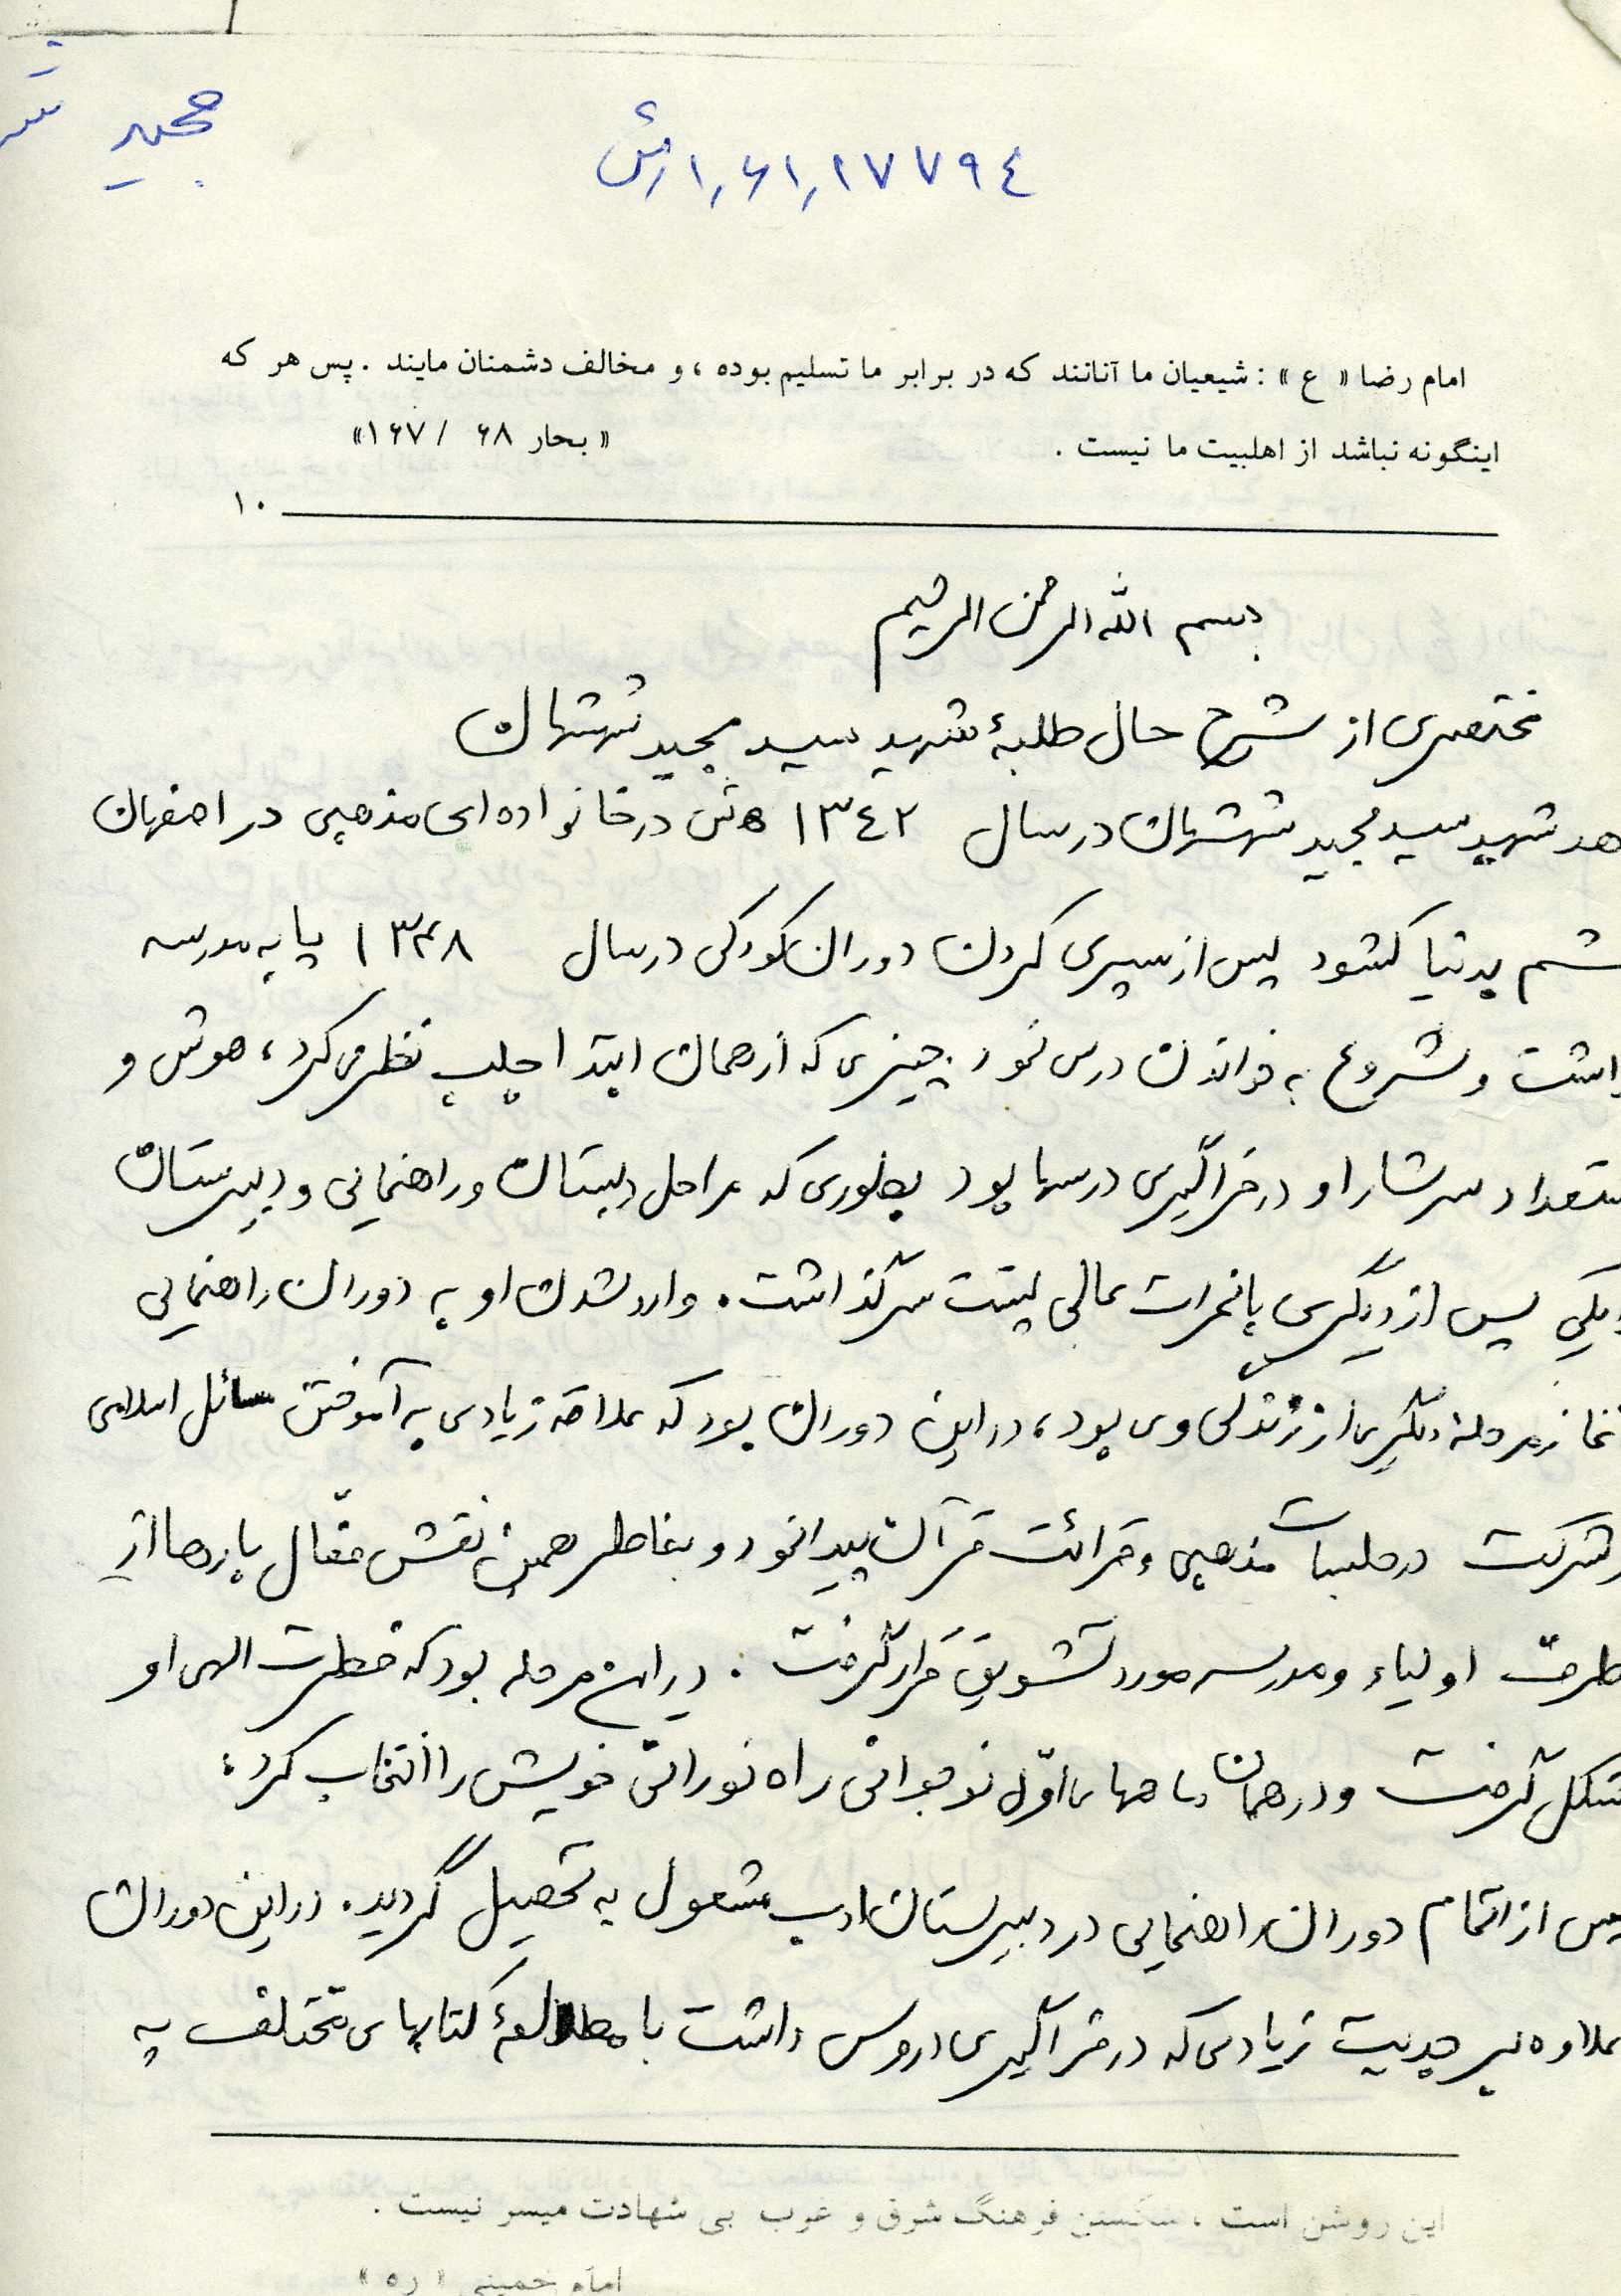 مجید
۱۷۷۹۴ر۶۱ر۱ر
امام رضا « ع » : شیعیان ما آنانند که در برابر ما تسلیم بوده ، و مخالف دشمنان مایند . پس هر که
اینگونه نباشد از اهلبیت ما نیست . « بحار ۶۸ / ۱۶۷»
۱۰
بسم الله الرحمن الرحیم
مختصری از شرح حال طلبهٔ شهید سید مجید شهشهان
شهید سید مجید شهشهان در سال ۱۳۴۲ ه ش در خانواده ای مذهبی در اصفهان
شم بدنیا کشود پس از سپری کردن دوران کودکی در سال ۱۳۴۸ پا به مدرسه
اشت و شروع به خواندن درس نمود . چیزی که از همان ابتدا جلب نظر می کرد ، هوش و
ستعداد سرشار او در فراگیری درسها بود بطوری که مراحل دبستان و راهنمائی و دبیرستان
یکی پس از دیگری با نمرات عالی پشت سر گذاشت . وارد شدن او به دوران راهنمایی
غاز مرحلهٔ دیگری از زندگی وی بود ، در این دوران بود که علاقه زیادی به آموختن مسائل اسلامی
شرکت در جلسات مذهبی و قرائت قرآن پیدا نمود و بخاطر همین نقش فعّال بارها از
طرف اولیاء و مدرسه مورد تشویق قرار گرفت . در این مرحله بود که فطرت الهی او
شکل گرفت و در همان ماههای اوّل نوجوانی راه نورانی خویش را انتخاب کرد ؛
پس از اتمام دوران راهنمایی در دبیرستان ادب مشغول به تحصیل گردید . در این دوران
علاوه بر جدیت زیادی که در فراگیری دروس داشت با مطالعهٔ کتابهای مختلف به
این روشن است ، شکستن فرهنگ شرق و غرب بی شهادت میسر نیست .
امام خمینی « ره »